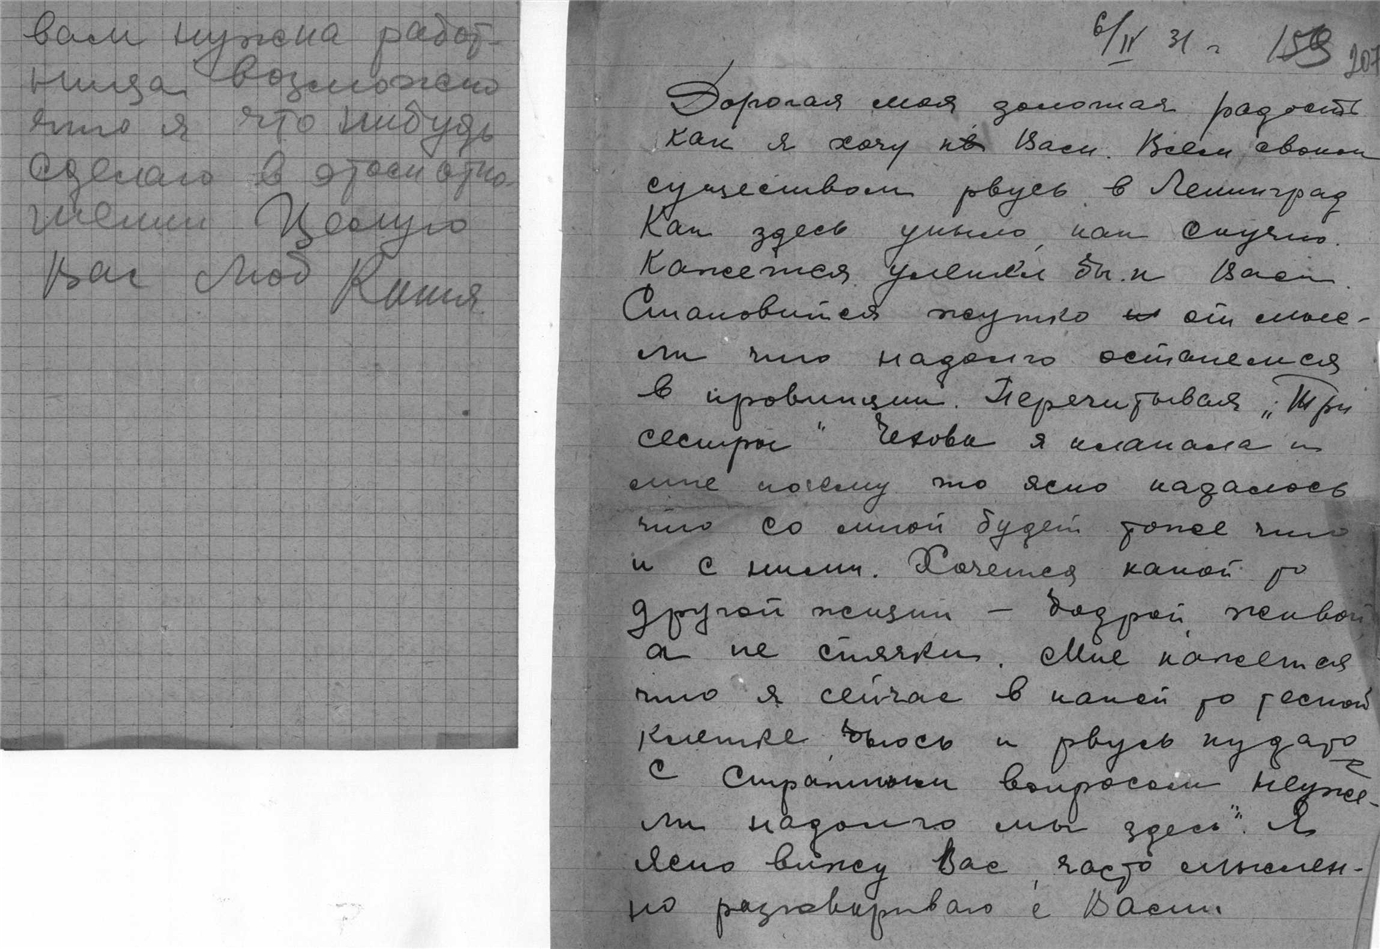 вам нужна работ-
ница возможно
что я что нибудь
сделаю в этом отно-
шении Целую
Вас Люб Китя
6/IV 31 г 159 207
Дорогая моя золотая радость
как я хочу к Вам. Всем своим
существом рвусь в Ленинград
Как здесь уныло, как скучно.
Кажется улетел бы к Вам.
Становится жутко от мыс-
ли что надолго останемся
в провинции. Перечитывая „Три
сестры" Чехова я плакала и
мне почему то ясно казалось
что со мной будет тоже что
и с ними. Хочется какой то
другой жизни — бодрой, живой,
а не спячки. Мне кажется
что я сейчас в какой то тесной
клетке, бьюсь и рвусь куда то
с страшным вопросом неуже-
ли надолго мы здесь". Я
ясно вижу Вас, часто мыслен-
но разговариваю с Вами.